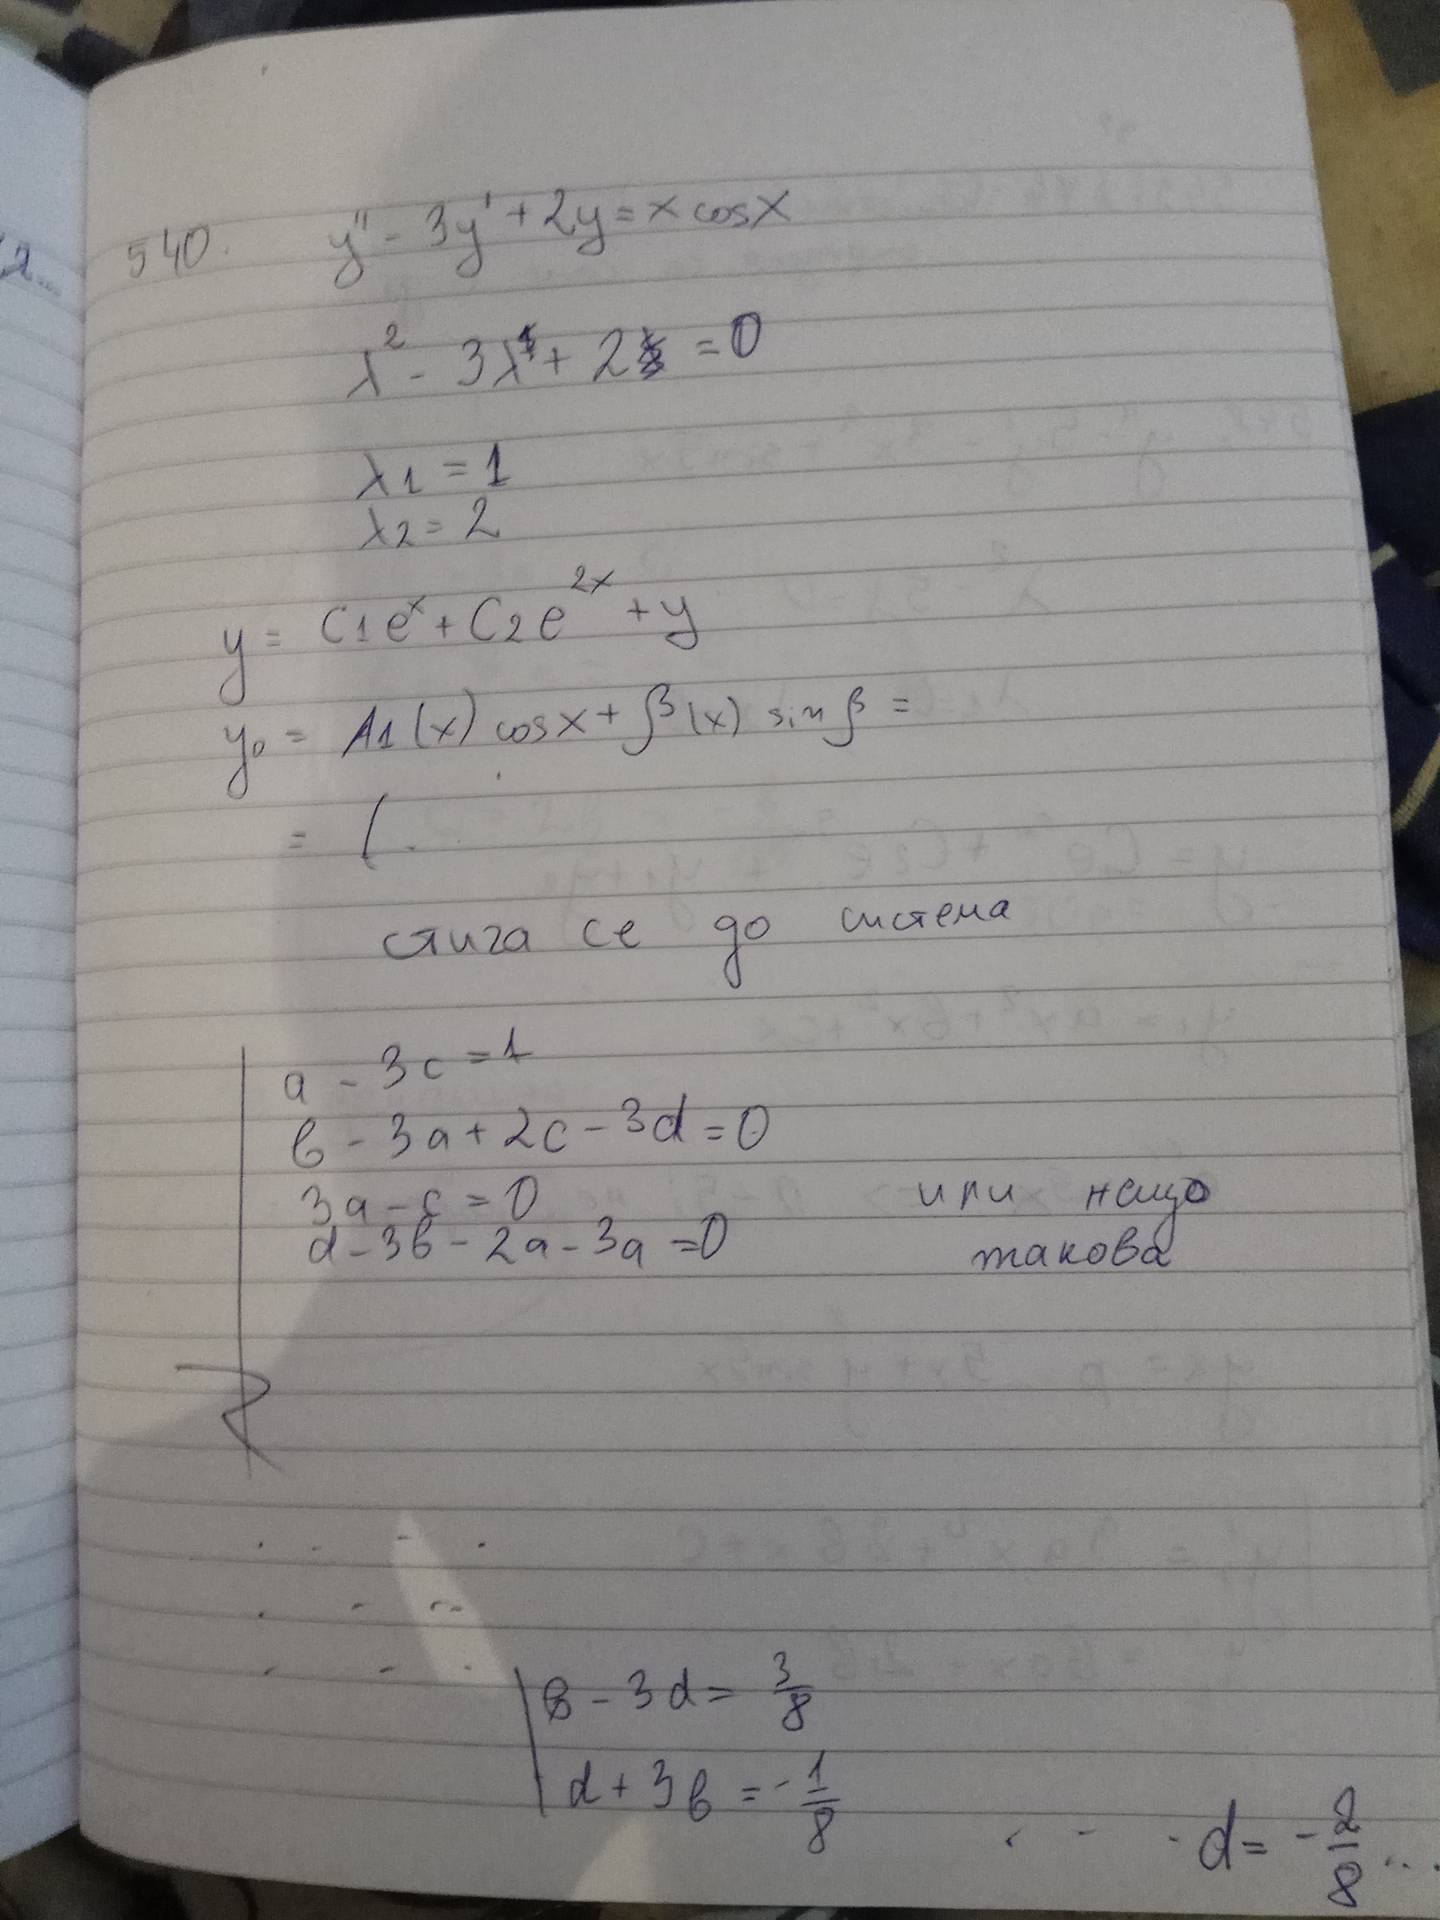 540. y'' - 3y' + 2y = x cos x
λ² - 3λ + 2 = 0
λ1 = 1
λ2 = 2
y = C1e^x + C2e^2x + y
y0 = A1(x) cos x + β(x) sin β =
= (. .
стига се до система
a - 3c = 1
в - 3a + 2c - 3d = 0
3a - c = 0 или нещо
d - 3в - 2a - 3a = 0 такова
в - 3d = 3/8
d + 3в = - 1/8
. - - d = - 2/8 ...